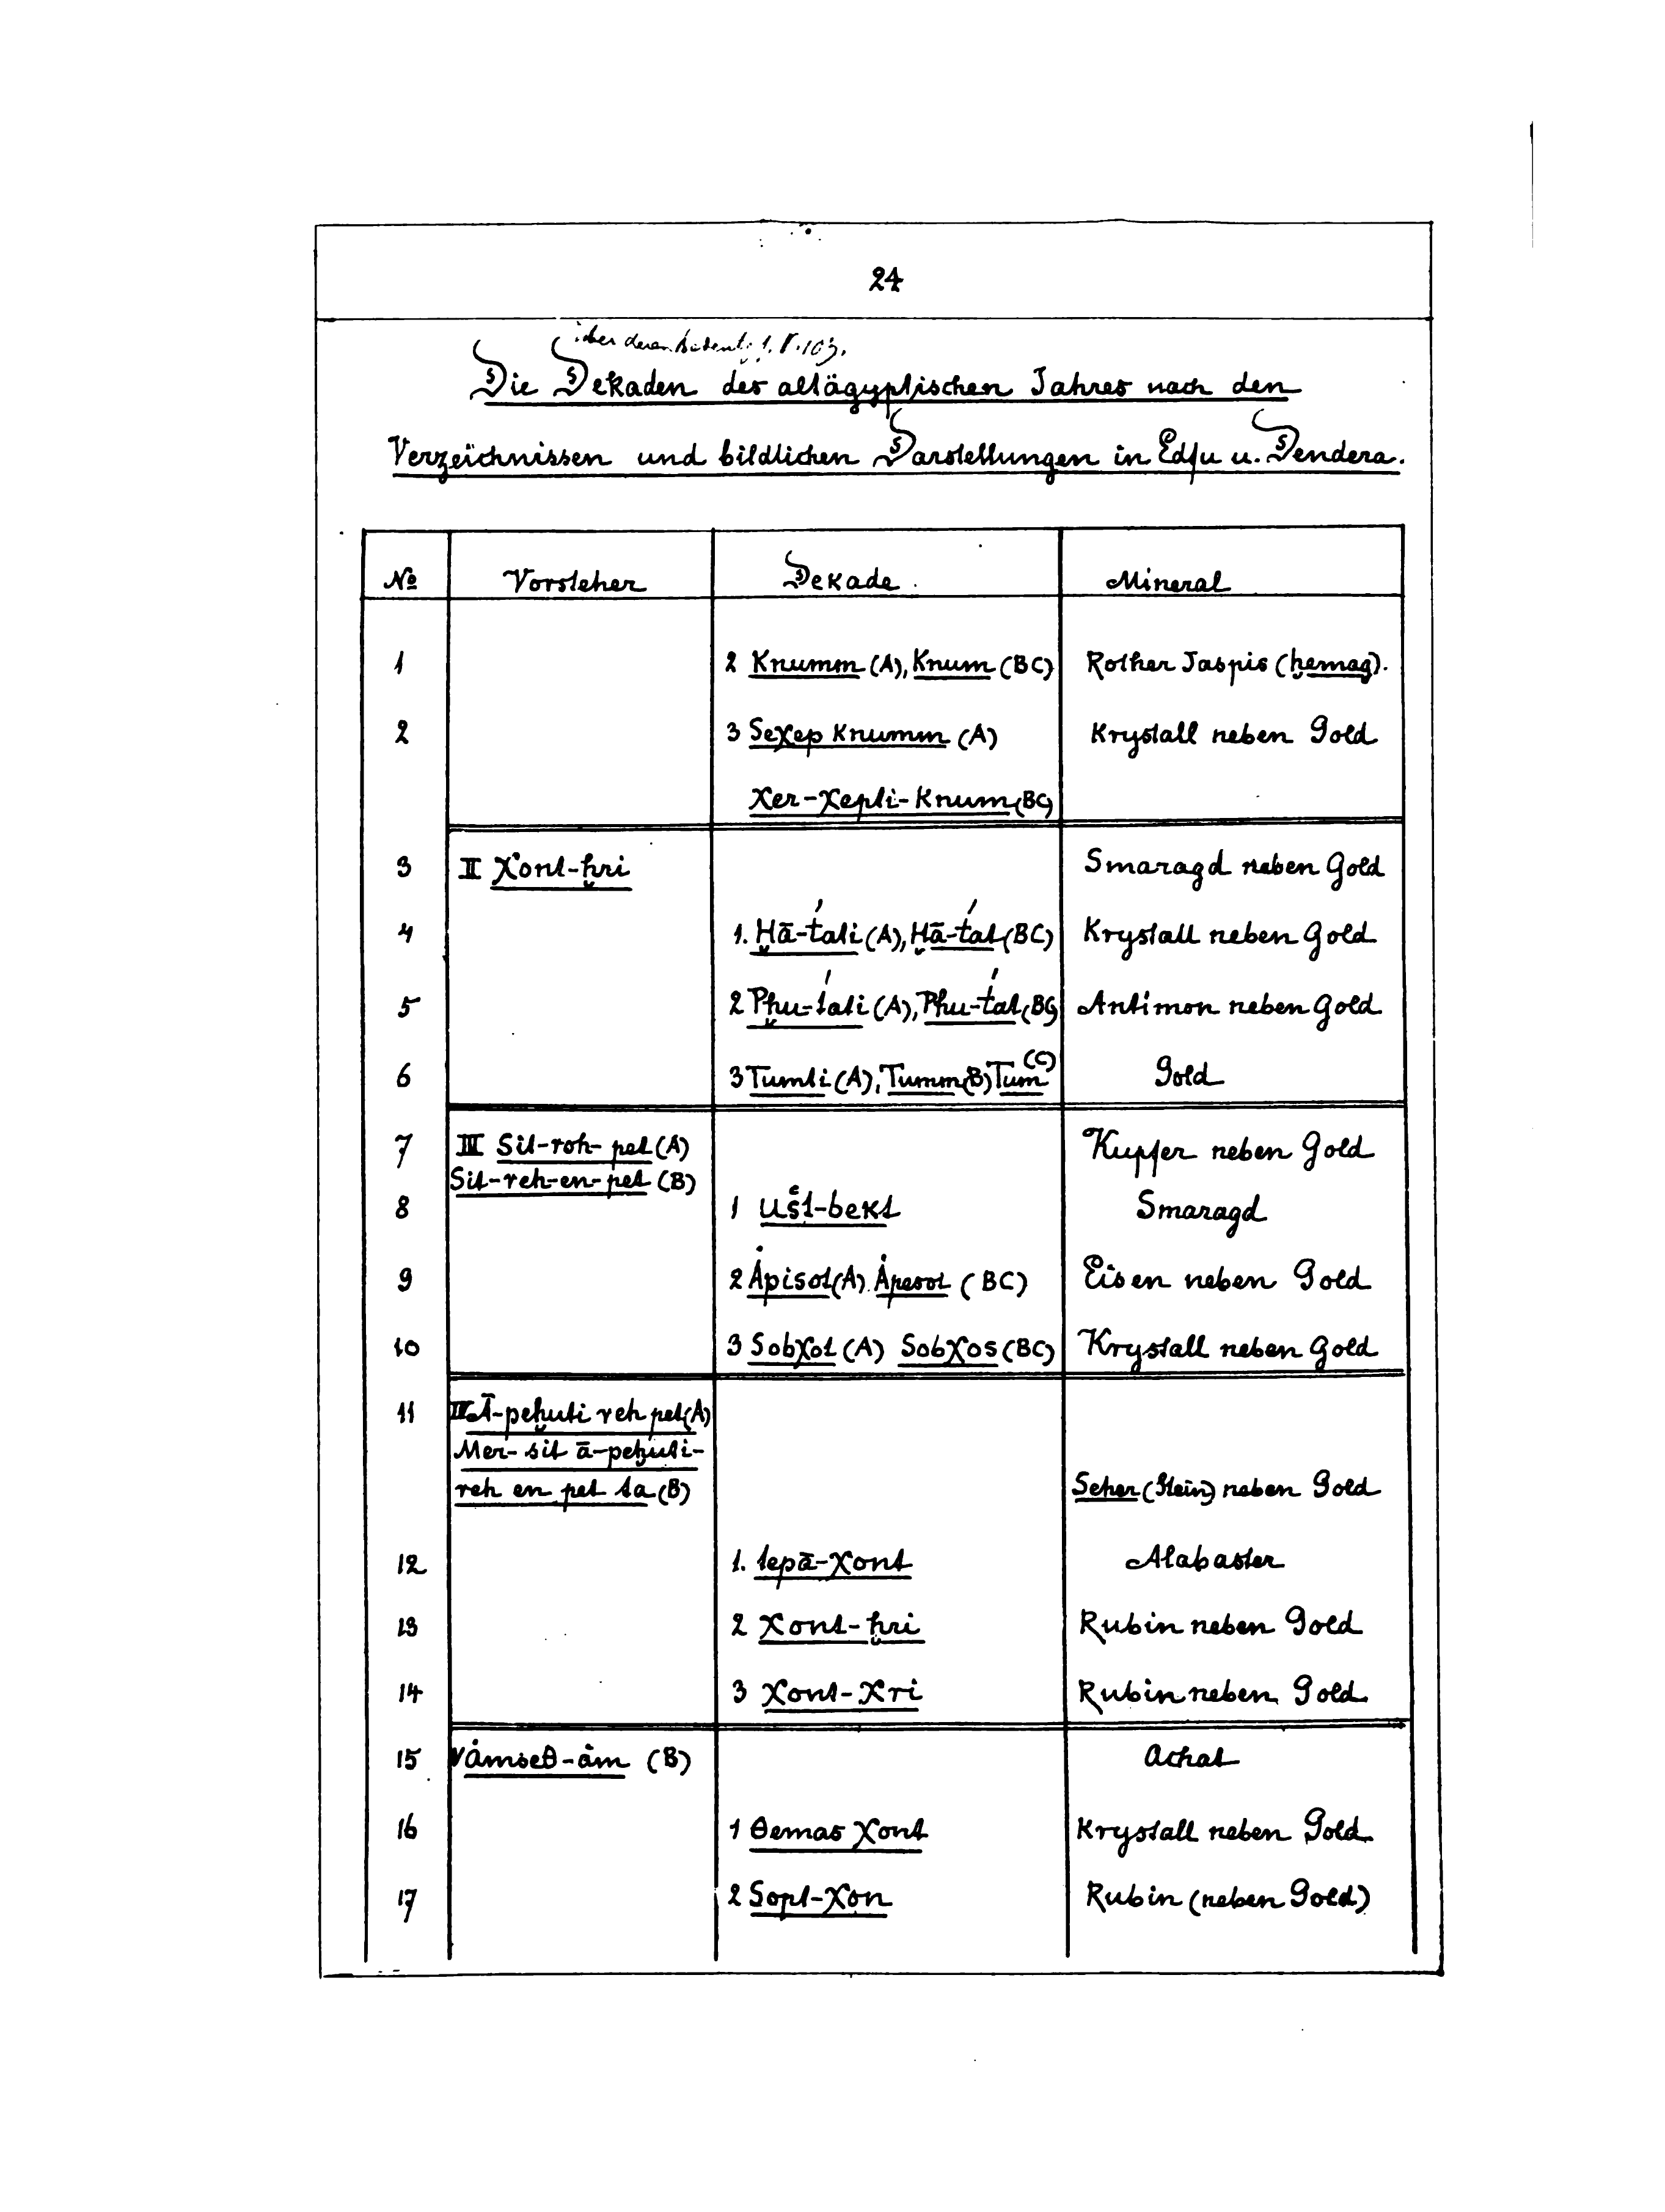 24
über deren Bedeut. s. S. 103.
Die Dekaden des altägyptischen Jahres nach den
Verzeichnissen und bildlichen Darstellungen in Edfu u. Dendera.
№ Vorsteher Dekade Mineral
1 2 Knumm (A), Knum (BC) Rother Jaspis (ḥemag).
2 3 Seχep Knumm (A) Krystall neben Gold
χer-χepti-Knum (BC)
3 II χont-ḥri Smaragd neben Gold
4 1. Ḥā-t́ati (A), Ḥā-t́at (BC) Krystall neben Gold
5 2 Pḥu-t́ati (A), Phu-t́at (BC) Antimon neben Gold
6 3 Tumti (A), Tumm (B) Tum (C) Gold
7 III Sit-roh-pet (A) Kupfer neben Gold
Sit-reh-en-pet (B)
8 1 Ušt-bekt Smaragd
9 2 Ȧpisot (A). Ȧpesot (BC) Eisen neben Gold
10 3 Sobχot (A) Sobχos (BC) Krystall neben Gold
11 IV Ā-peḥuti reh pet (A)
Mer-sit ā-peḥuti-
reh en pet ta (B) Seher (Stein) neben Gold
12 1. tepā-χont Alabaster
13 2 χont-ḥri Rubin neben Gold
14 3 χont-χri Rubin neben Gold
15 V ȧmseθ-ȧm (B) Achat
16 1 θemas χont Krystall neben Gold
17 2 Sopt-χon Rubin (neben Gold)